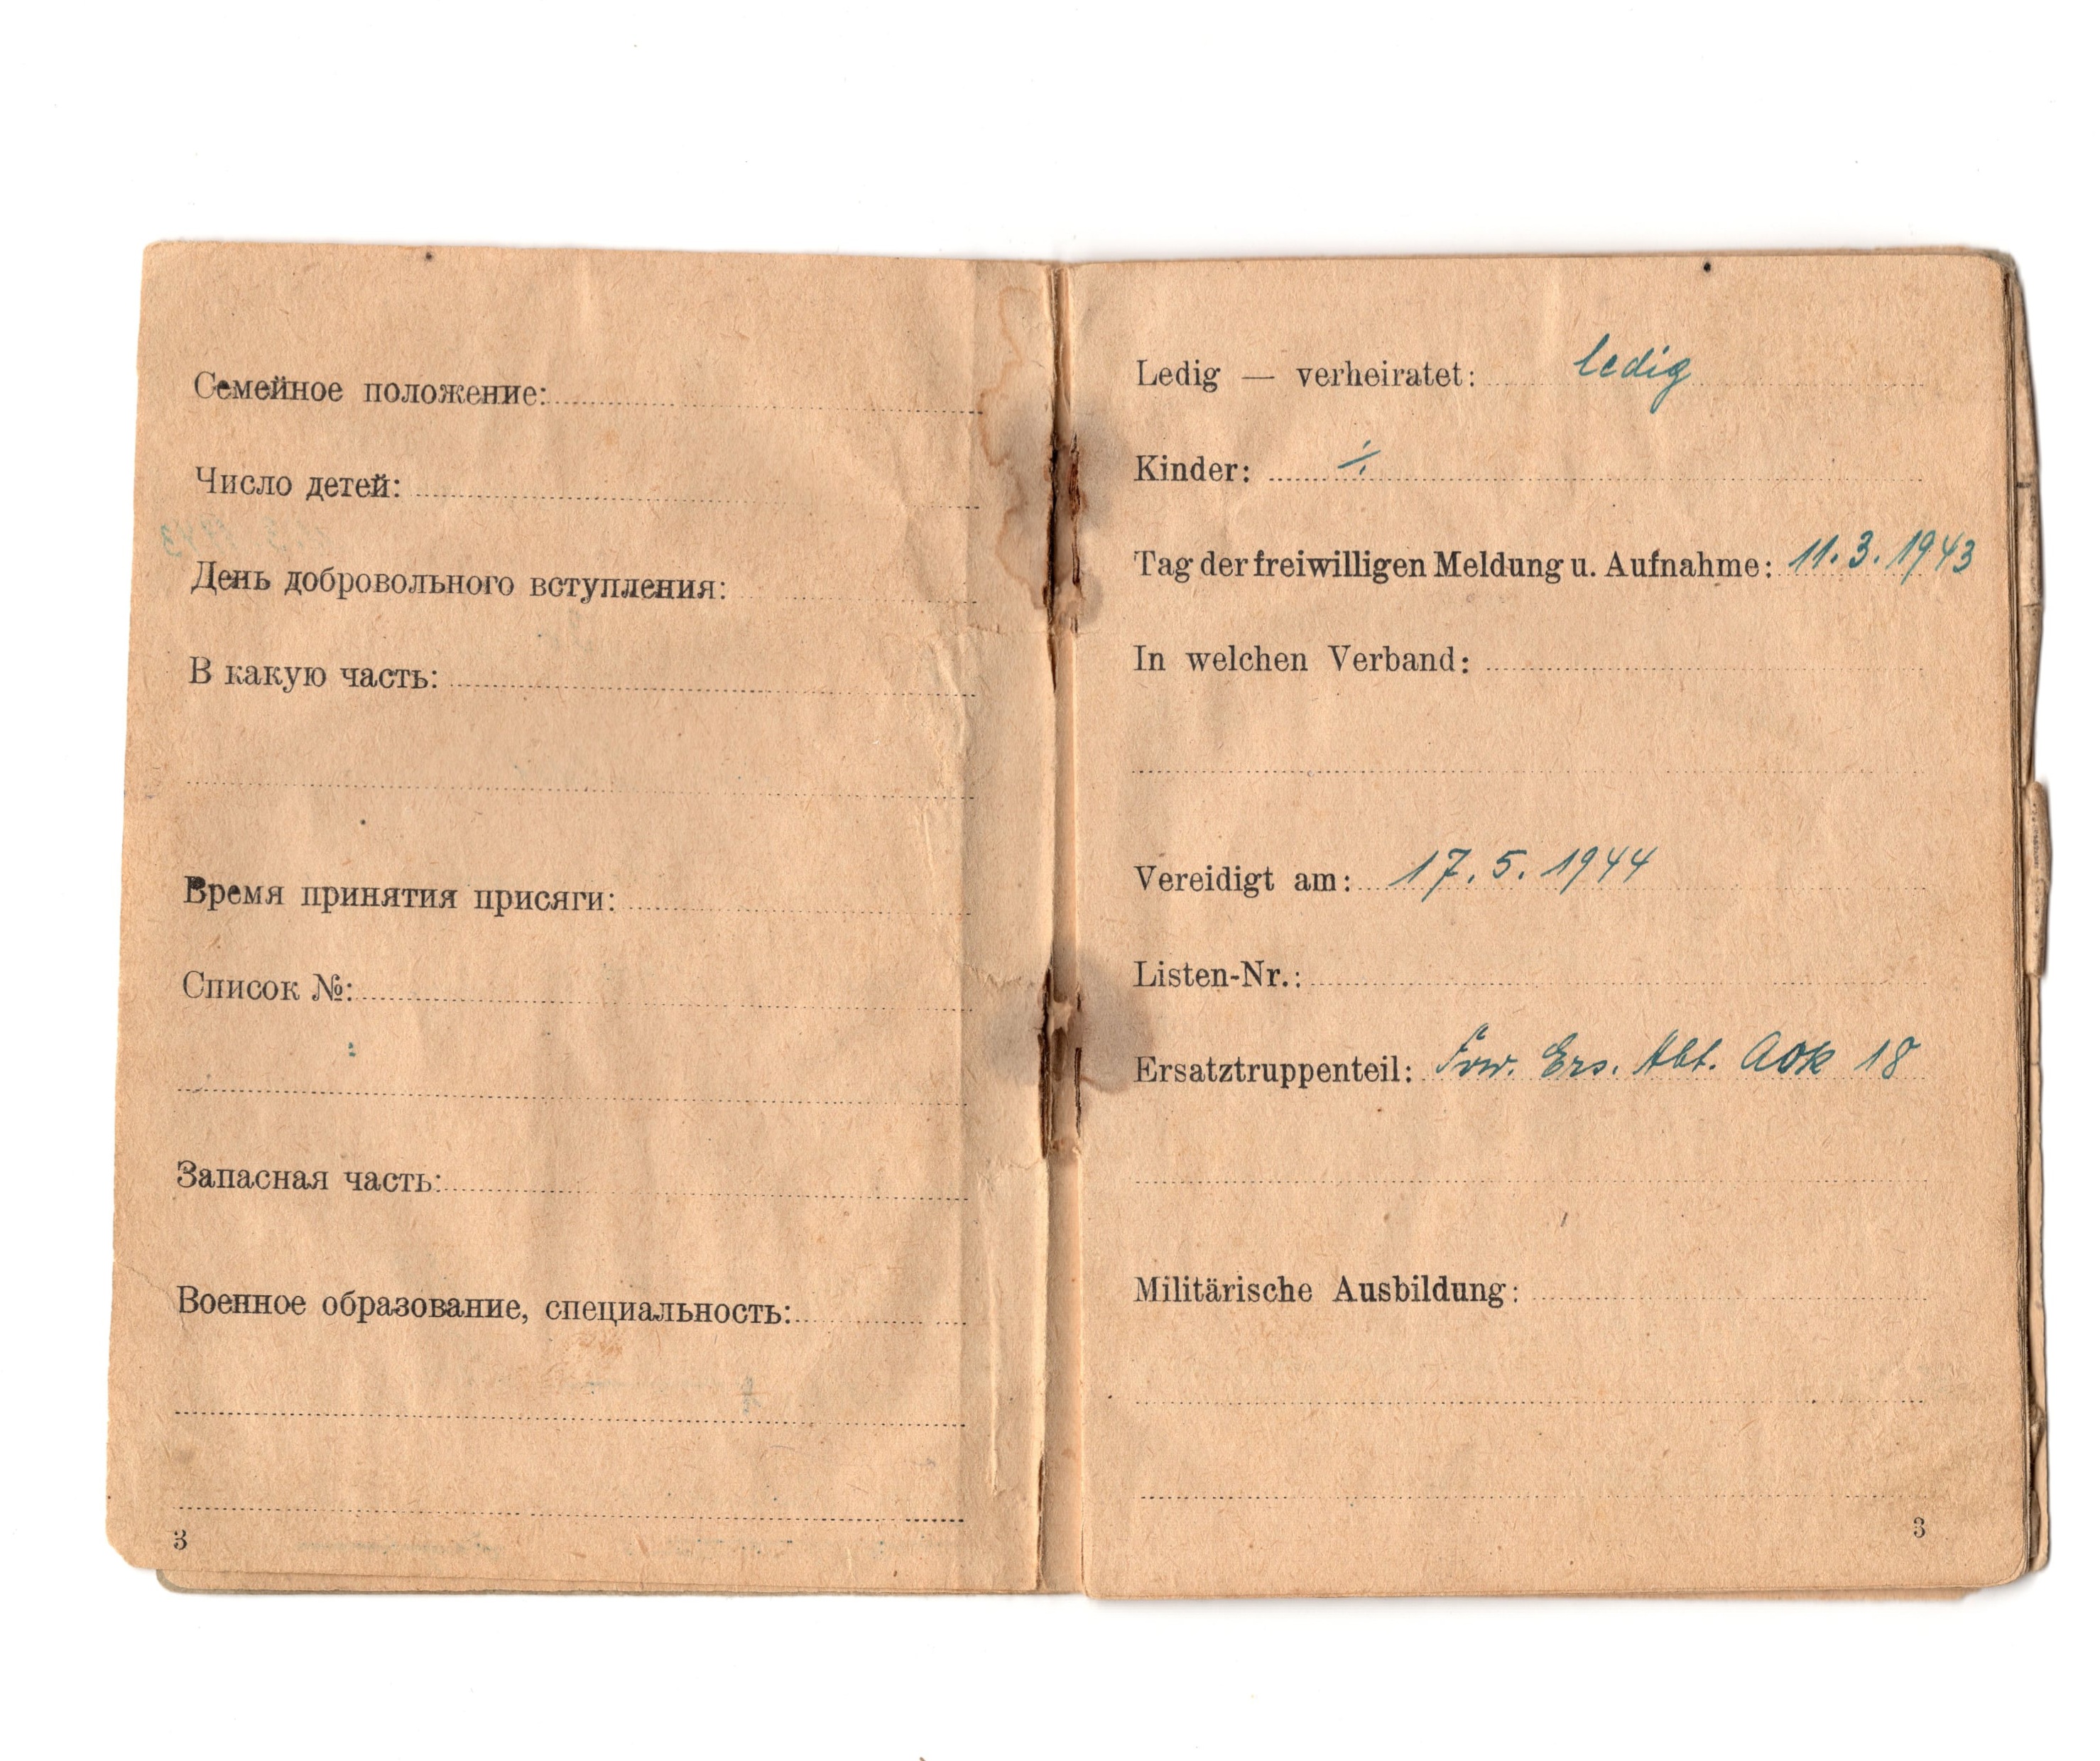 Семейное положение:
Число детей:
День добровольного вступления:
В какую часть:
Время принятия присяги:
Список №:
Запасная часть:
Военное образование, специальность:
3
Ledig — verheiratet: ledig
Kinder: ./.
Tag der freiwilligen Meldung u. Aufnahme: 11.3.1943
In welchen Verband:
Vereidigt am: 17.5.1944
Listen-Nr.:
Ersatztruppenteil: Frw. Ers. Abt. AOK 18
Militärische Ausbildung:
3